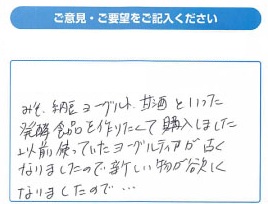 ご意見・ご要望をご記入ください
みそ、納豆、ヨーグルト、甘酒といった
発酵食品を作りたくて購入しました
以前使っていたヨーグルティアが古く
なりましたので、新しい物が欲しく
なりましたので…